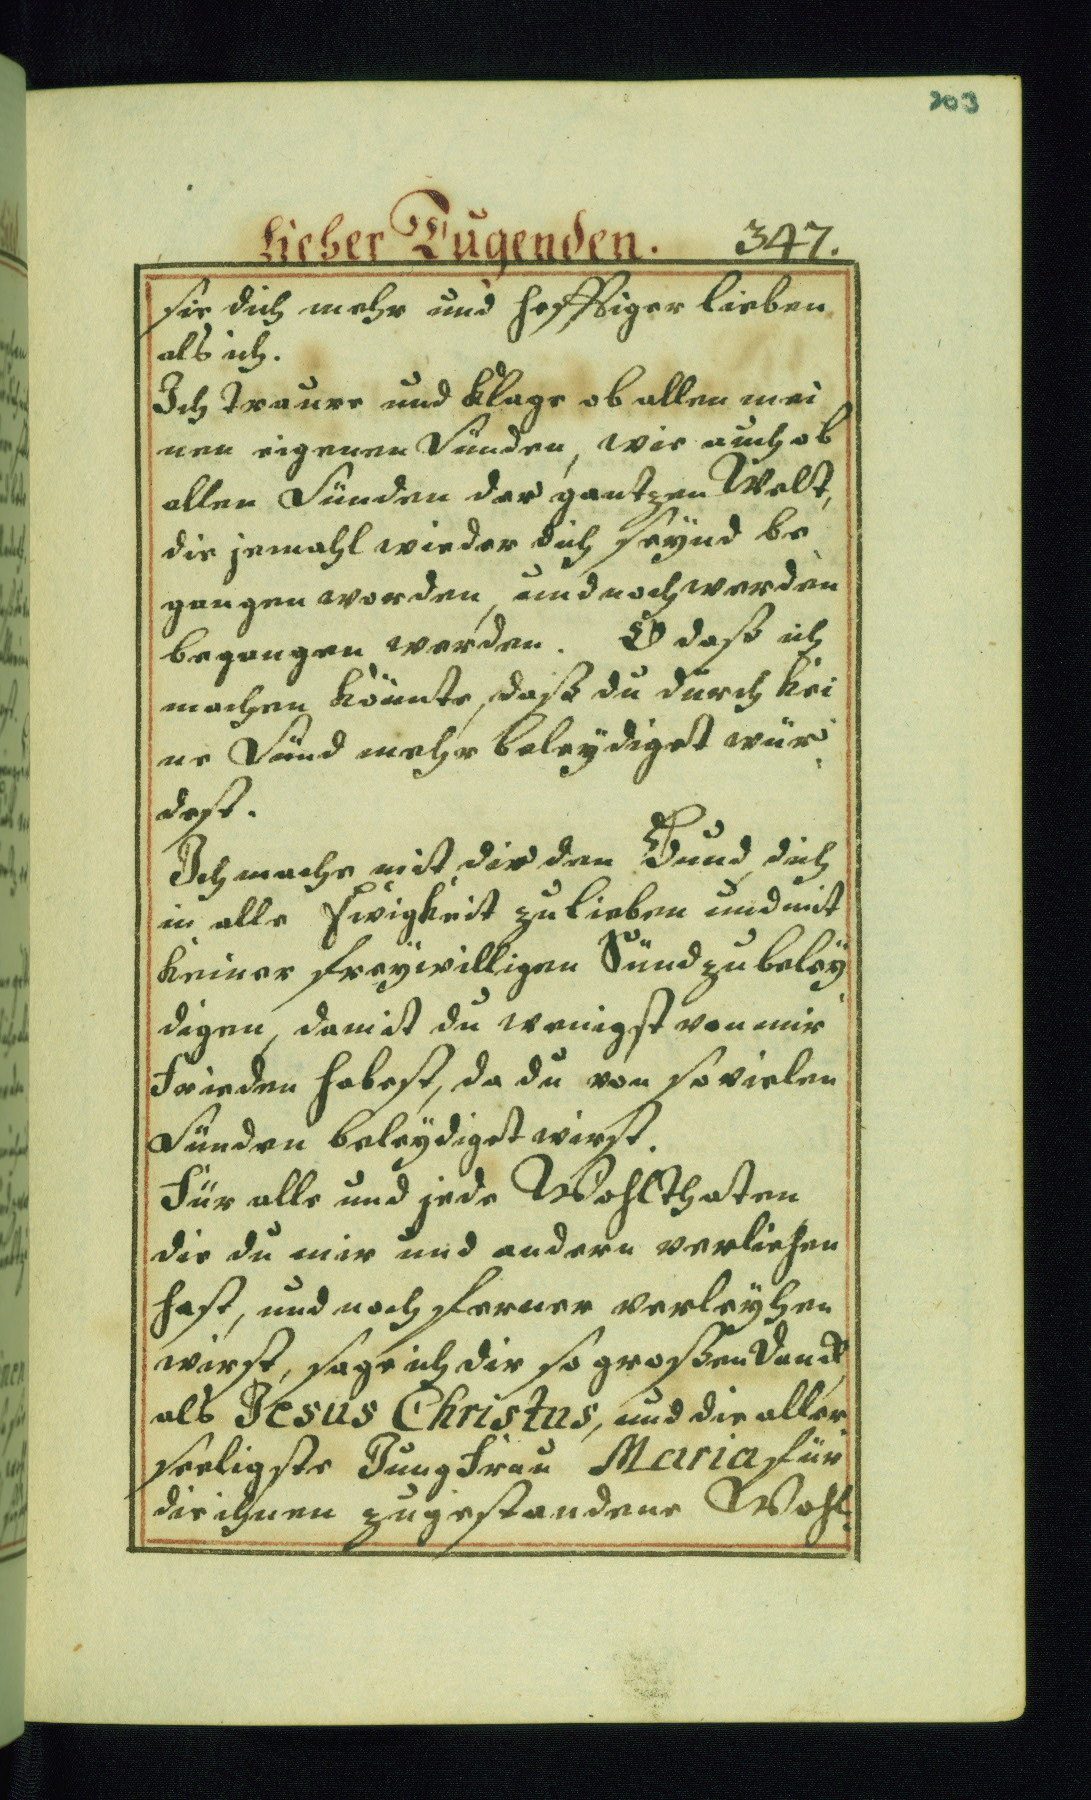 203
lieber Tugenden. 347.
sie dich mehr und hefftiger lieben
als ich.
Ich traure und klage ob allen mei
nen eigenen Sünden, wie auch ob
allen Sünden der gantzen Welt,
die jemahl wieder dich seÿnd be
gangen worden, und noch werden
begangen werden. O daß ich
machen könnte, daß du durch kei
ne Sünd mehr beleÿdiget wür
dest.
Ich mache mit dir den Bund, dich
in alle Ewigkeit zu lieben und mit
keiner freÿwilligen Sünd zu beleÿ
digen, damit du wenigst von mir
Frieden habest, da du von so vielen
Sünden beleÿdiget wirst.
Für alle und jede Wohlthaten
die du mir und andern verliehen
hast, und noch ferner verleÿhen
wirst, sage ich dir so großen Danck
als Jesus Christus, und die aller
seeligste Jungfrau Maria für
die ihnen zugestandene Wohl-